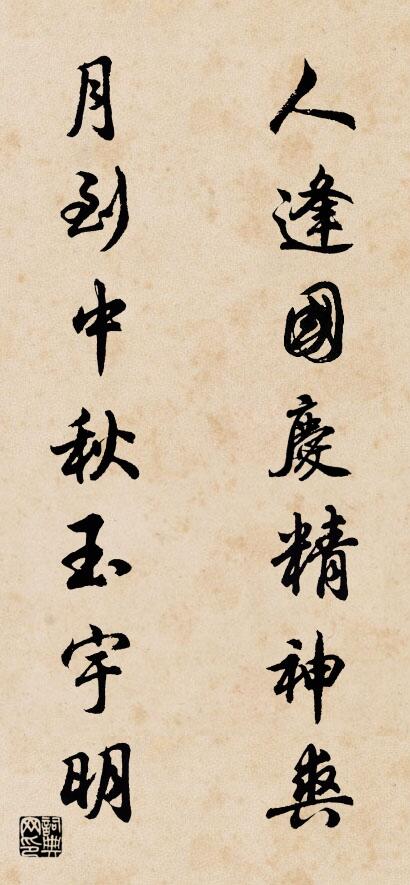 人逢國慶精神爽
月到中秋玉宇明
詞典网印